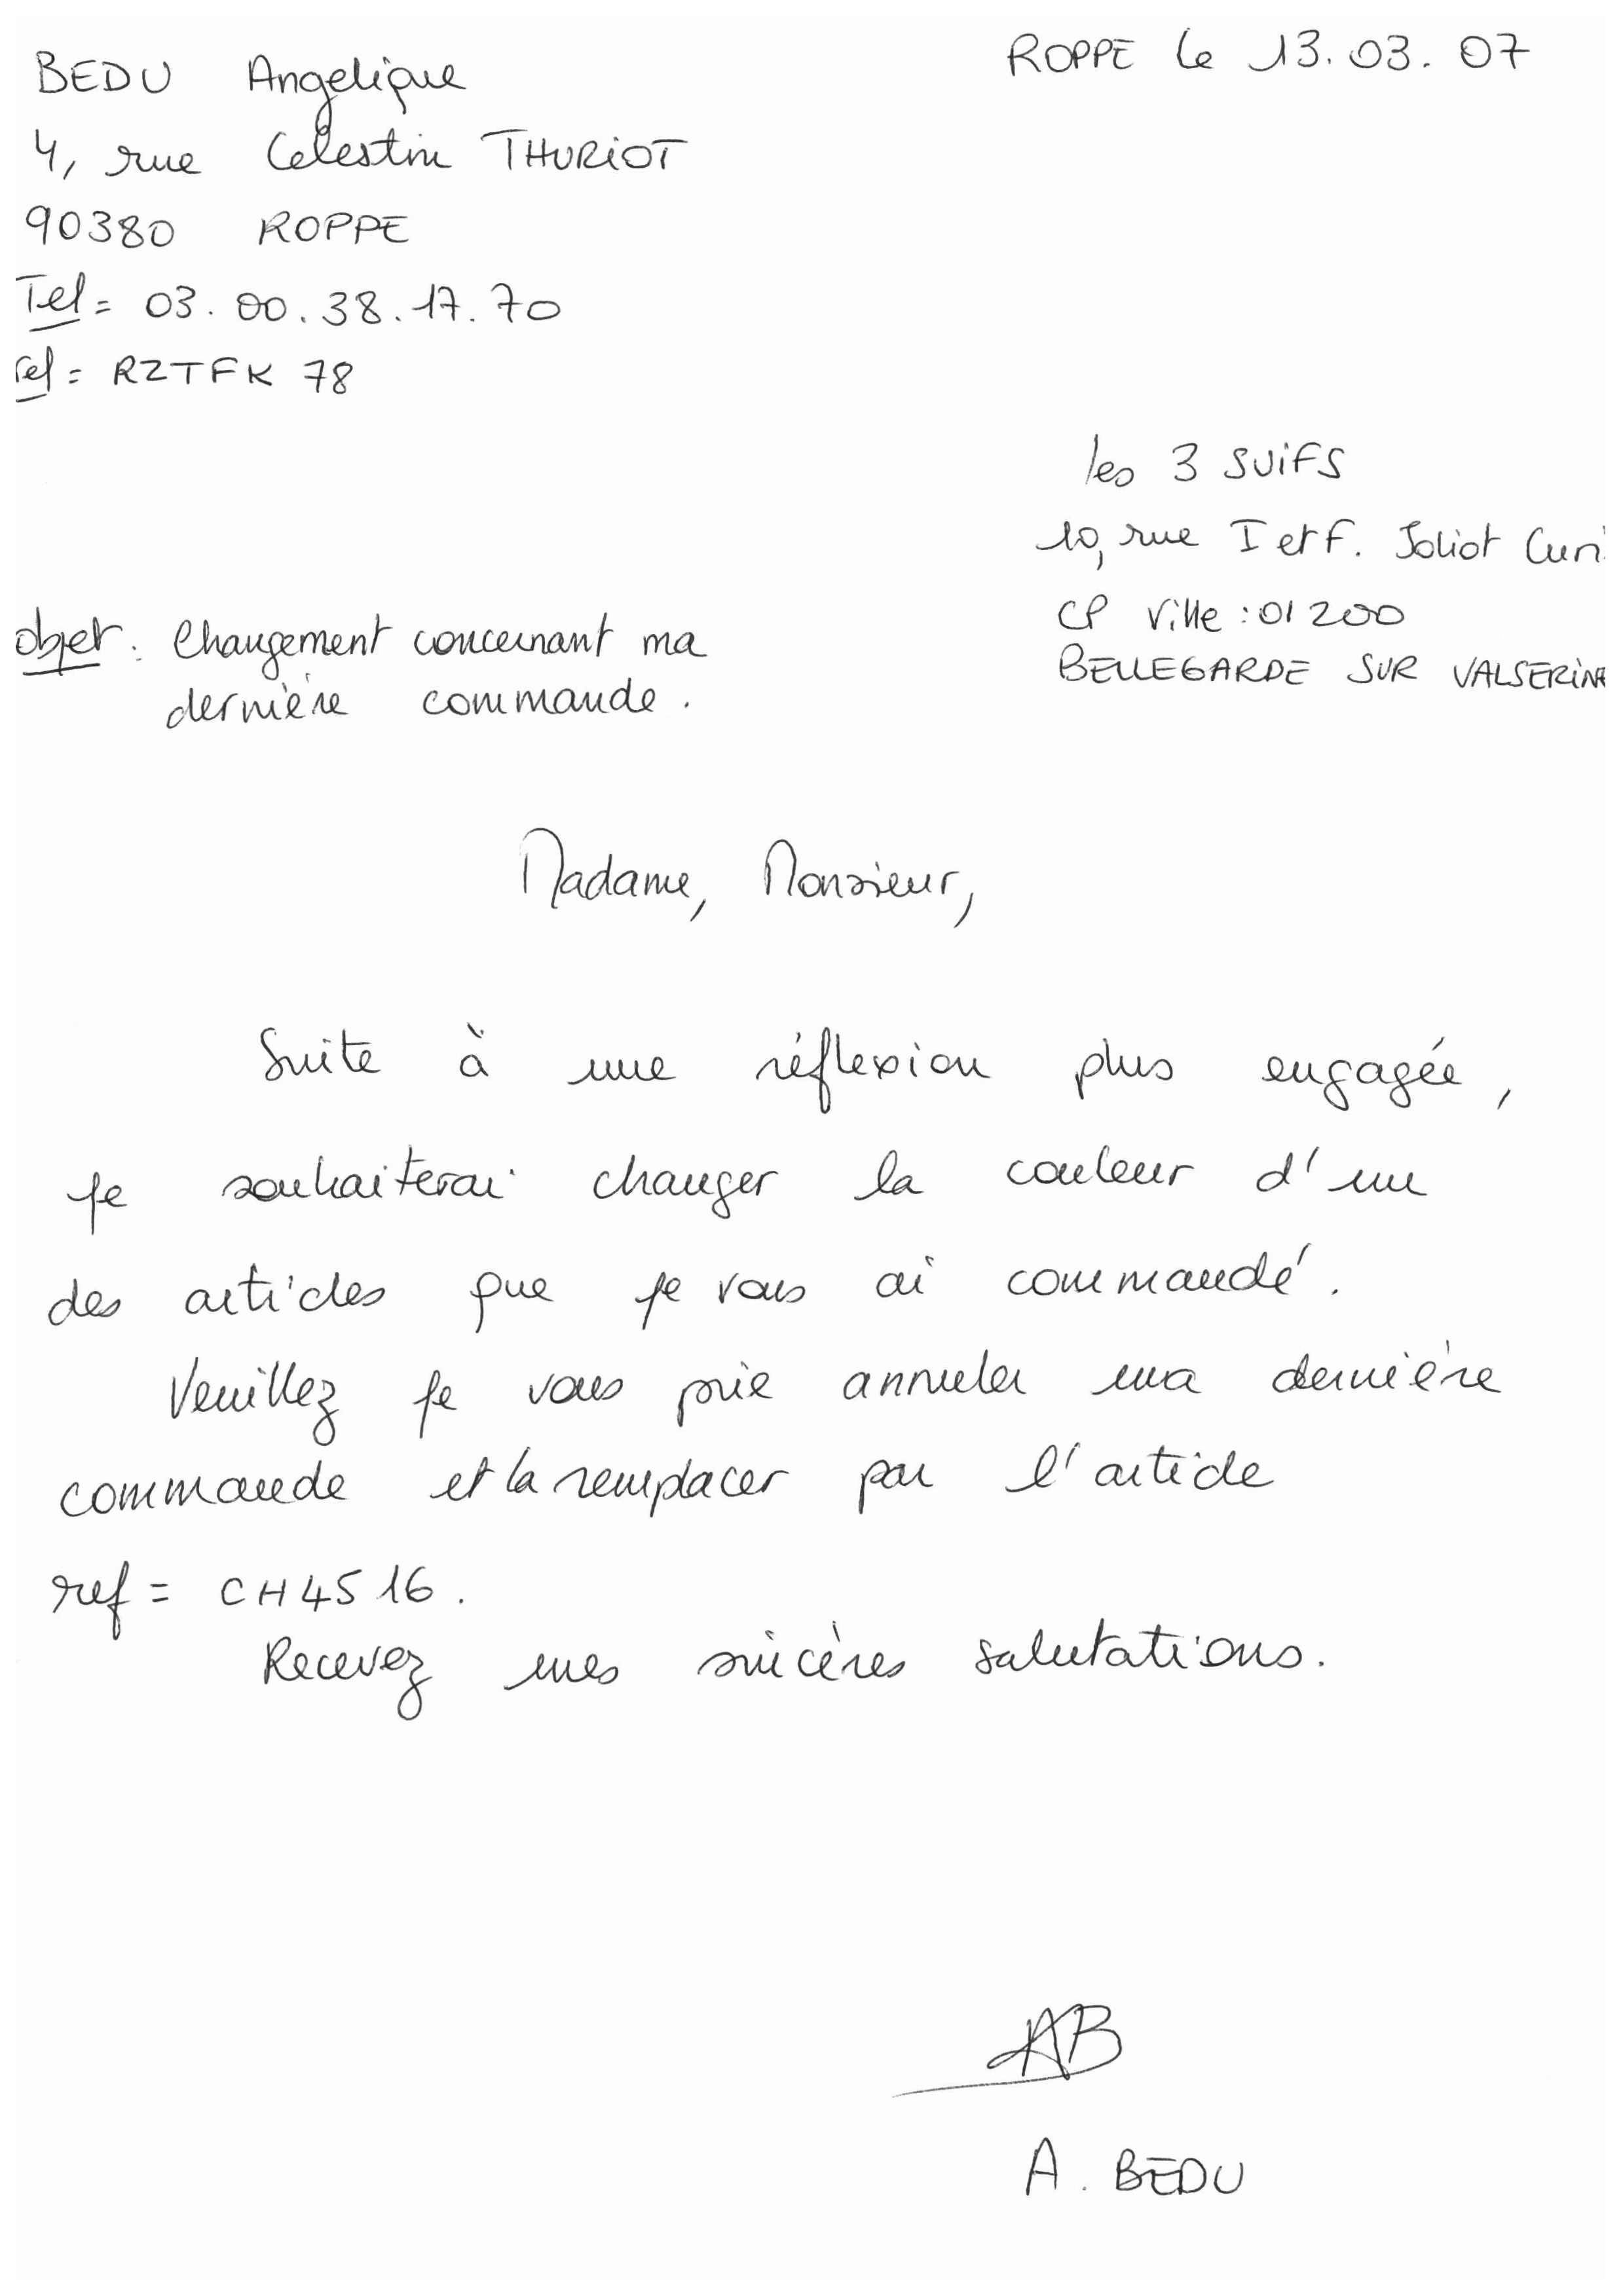 ROPPE le 13.03.07
BEDU Angelique
4, rue Celestin THURIOT
90380 ROPPE
Tel = 03.00.38.17.70
ref = RZTFK 78
les 3 SUIFS
10, rue I et F. Joliot Curi
CP Ville : 01200
BELLEGARDE SUR VALSERINE
objet : Changement concernant ma
dernière commande.
Madame, Monsieur,
Suite à une réflexion plus engagée,
je souhaiterai changer la couleur d'un
des articles que je vous ai commandé.
Veuillez je vous prie annuler ma dernière
commande et la remplacer par l'article
ref = CH4516.
Recevez mes sincères salutations.
AB
A. BEDU